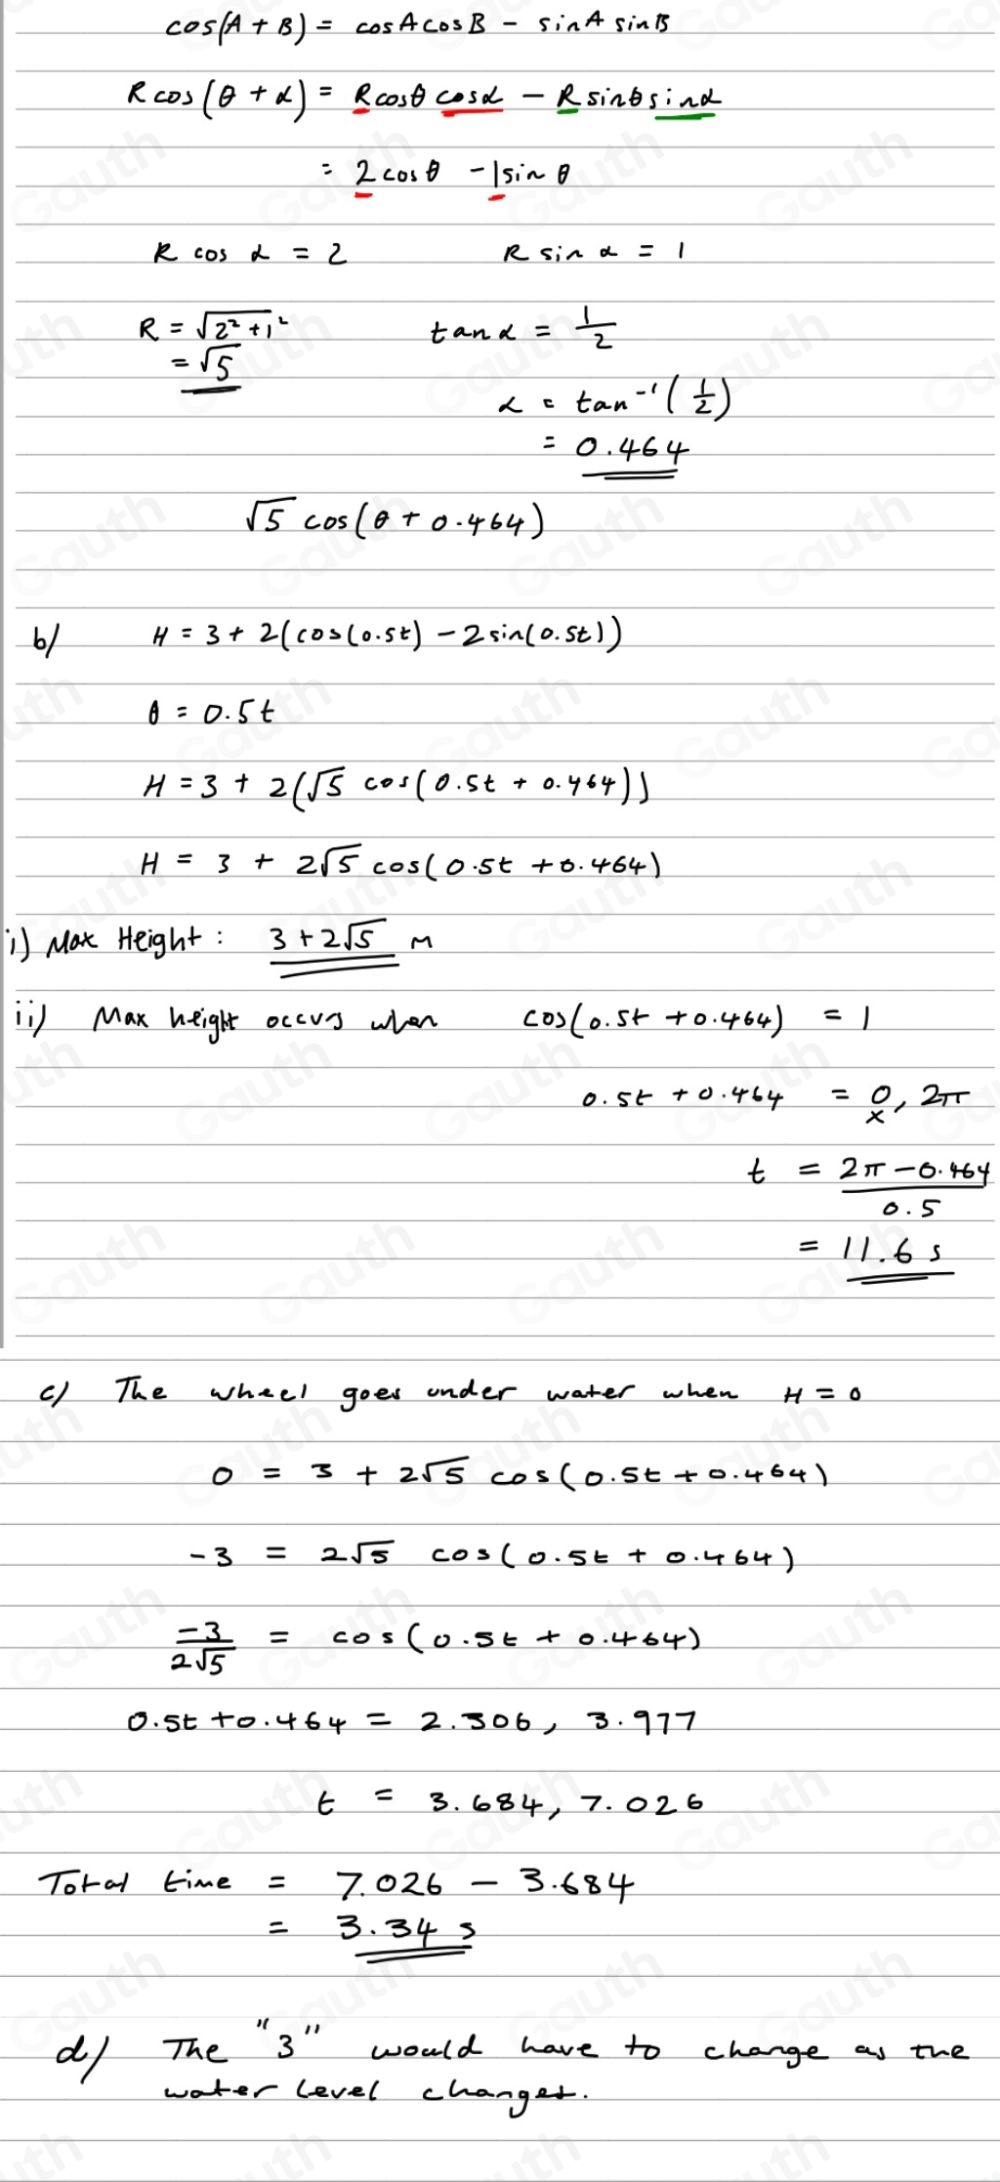 cos(A + B) = cosAcosB - sinA sinB
Rcos(θ + α) = Rcosθ cosα - Rsinθsinα
= 2cosθ - 1sin θ
R cos α = 2 R sin α = 1
R = √2² + 1² tanα = 1/2
= √5
α = tan⁻¹(1/2)
= 0.464
√5 cos(θ + 0.464)
b/ H = 3 + 2(cos(0.5t) - 2sin(0.5t))
θ = 0.5t
H = 3 + 2(√5 cos(0.5t + 0.464))
H = 3 + 2√5 cos(0.5t + 0.464)
i) Max Height : 3 + 2√5 M
ii) Max height occurs when cos(0.5t + 0.464) = 1
0.5t + 0.464 = 0, 2π
x
t = 2π - 0.464 / 0.5
= 11.6 s
c) The wheel goes under water when H = 0
0 = 3 + 2√5 cos(0.5t + 0.464)
-3 = 2√5 cos(0.5t + 0.464)
-3/2√5 = cos(0.5t + 0.464)
0.5t + 0.464 = 2.306, 3.977
t = 3.684, 7.026
Total time = 7.026 - 3.684
= 3.34 s
d/ The "3" would have to change as the
water level changes.